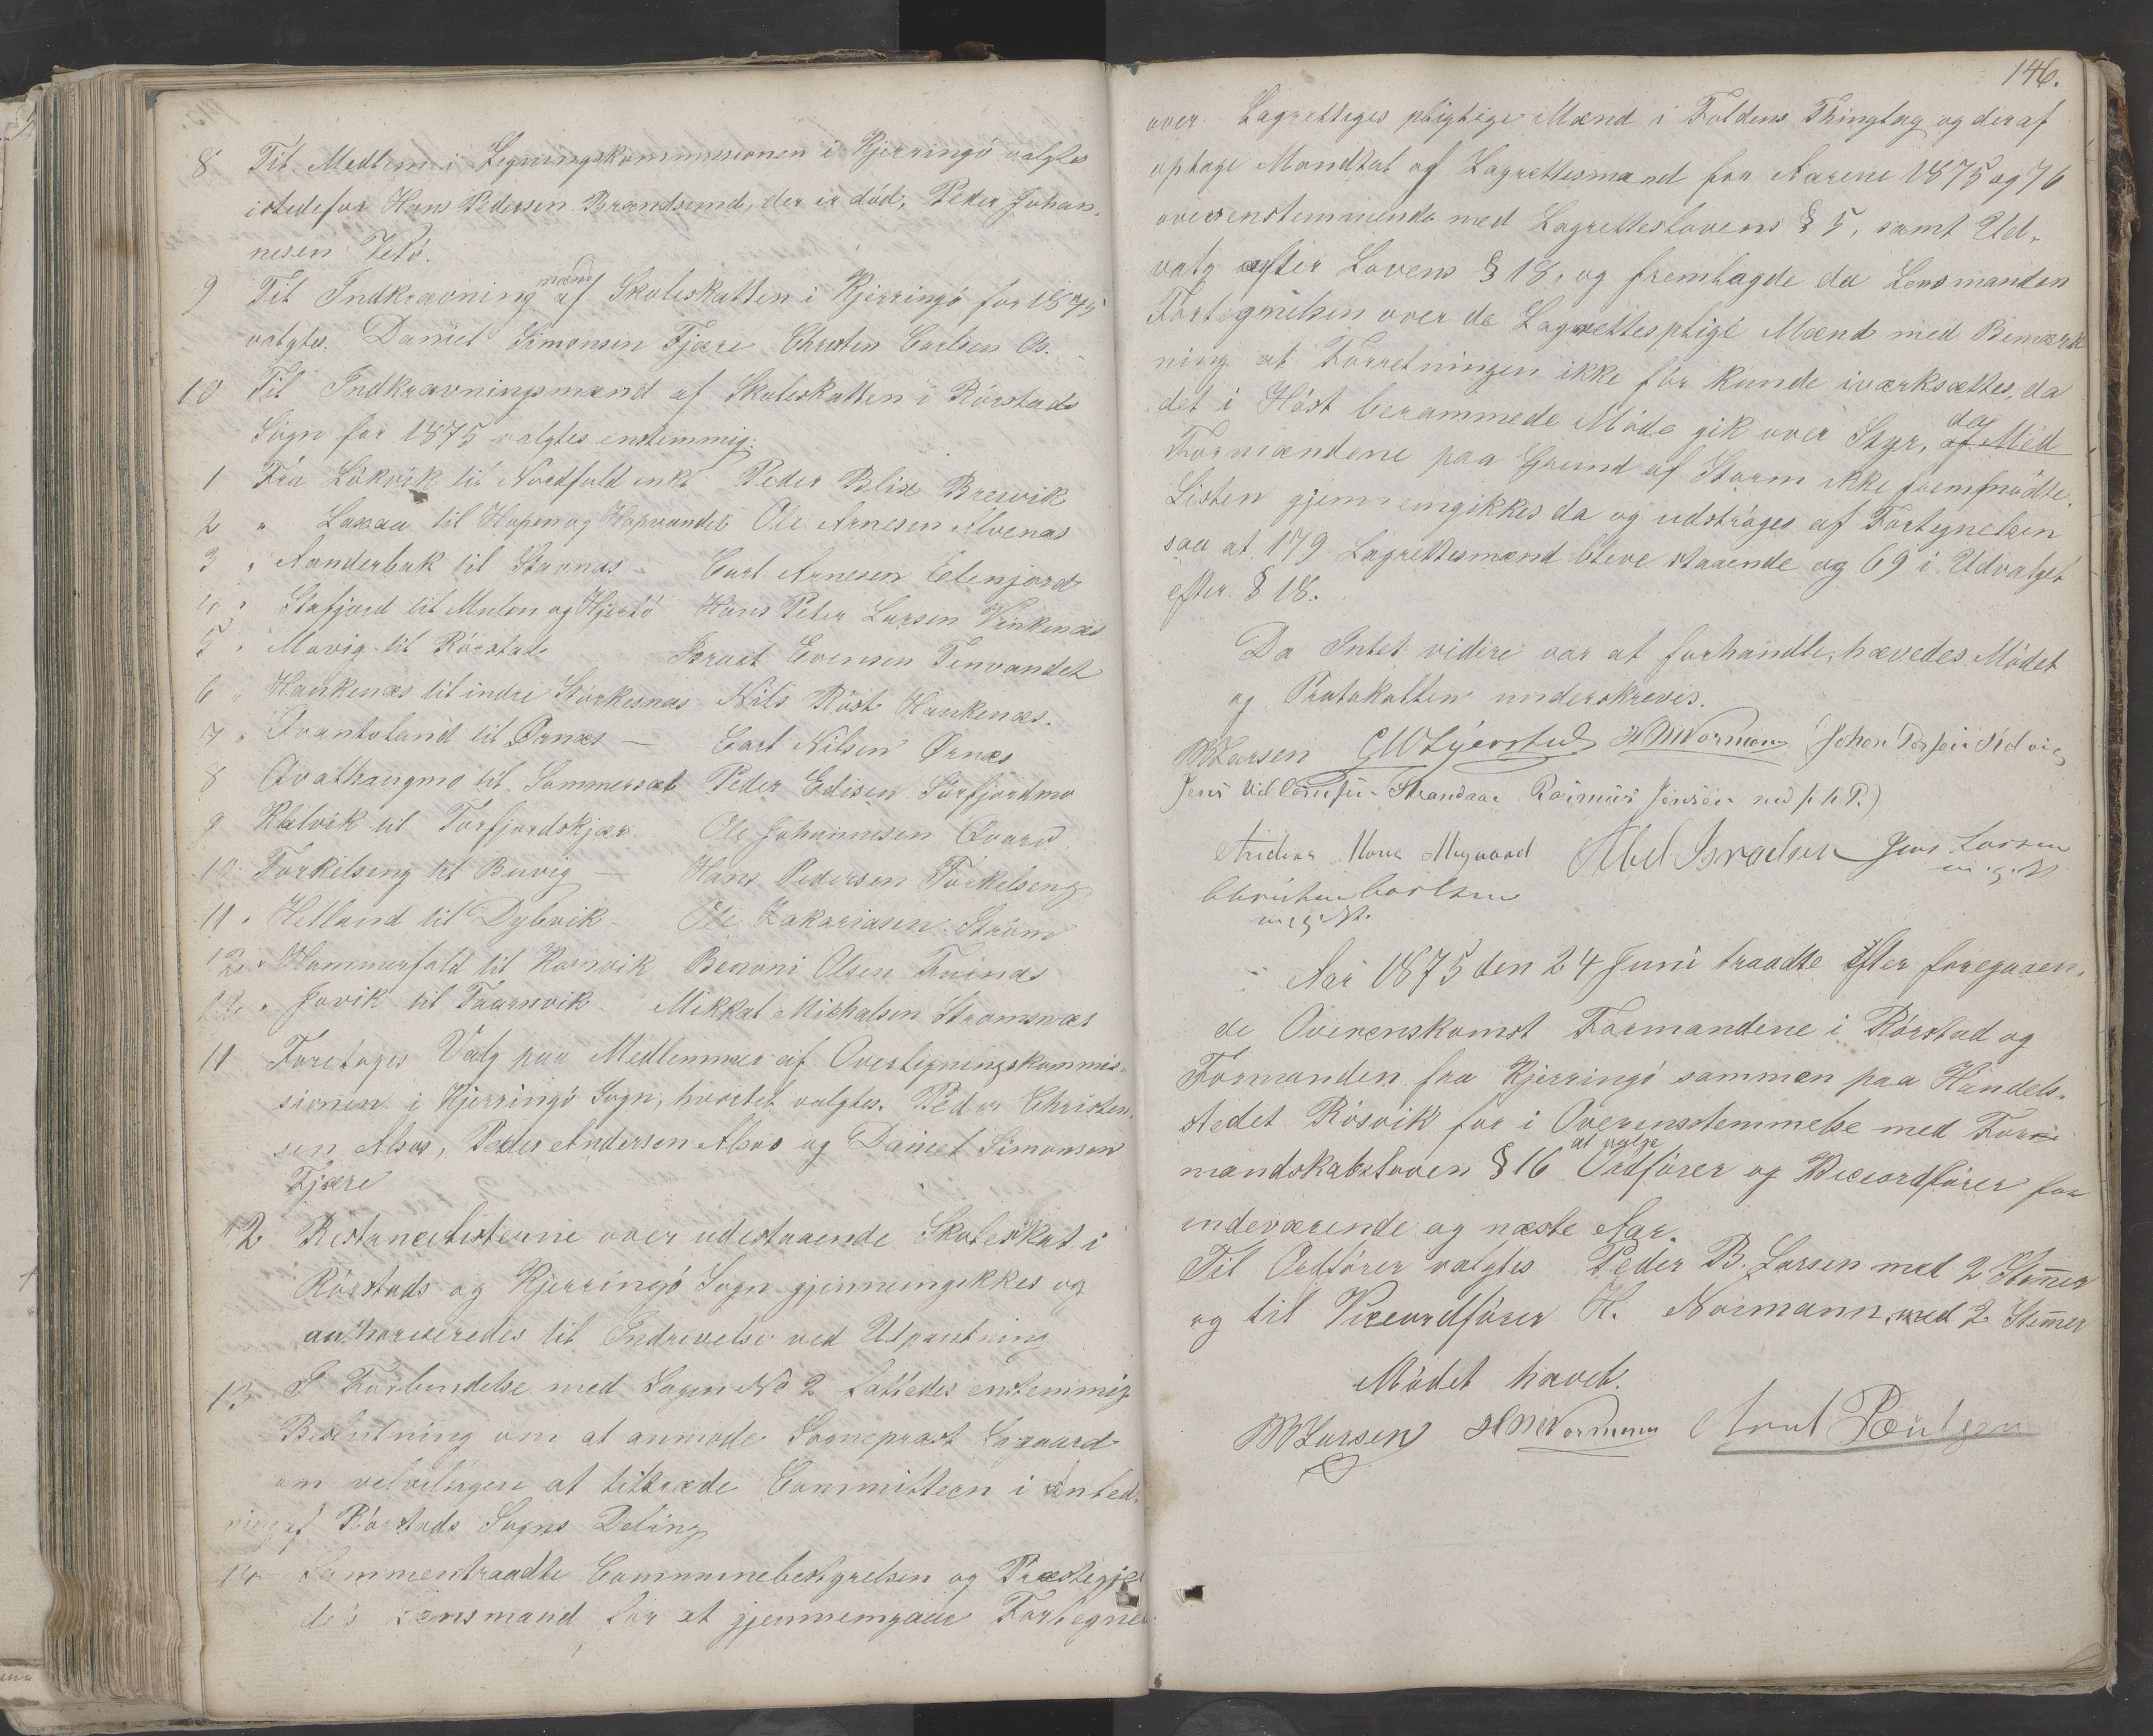 8 Til Medlem i Ligningskommissionen i Kjerringö valgtes
istedefor Hans Pedersen Brændsund, der er död, Peder Johan-
nesen Vetö.
9 Til Indkrævning mænd af Skoleskatten i Kjerringö for 1875
valgtes. Daniel Simonsen Fjære Christen Carlsen Os.
10 Til Indkrævningsmænd af Skoleskatten i Rörstads
Sogn for 1875 valgtes enstemmig:
1 Fra Lökvik til Nordfold inkl Peder Blix Bresvik
2 " Laxaa til Hopen og Hopvandet Ole Arnesen Alvenas
3 " Aanderbak til Stavnas - Carl Arnesen Elenjord
4 " Stafjord til Mulen og Hjertö Hans Peter Larsen Vinkenæs
5 " Movig til Rörstad Israel Evensen Tenvandet
6 " Haukenæs til indre Storkesnæs Nils Röst Haukenæs.
7 " Qvantoland til Ørnæs - Carl Nilsen Ørnæs
8 Qvathaugmo til Sommersæt Peder Edisen Sörfjordmo
9 Kalvik til Torfjordskjær Ole Johannesen Qvarv
10 Torkelseng til Buvig - Hans Pedersen Torkelseng
11 " Helland til Dybvik - Ole Zakariasen Ström
12 " Hammerfald til Kornvik Benoni Olsen Trænæs
12 " Jovik til Taarnvik - Mikkal Mikkalsen Strömsnæs
11 Foretoges Valg paa Medlemmer af Overligningskommis-
sionen i Kjerringö Sogn, hvortil valgtes. Peder Christen-
sen Alsos, Peder Andersen Alsos og Daniel Simonsen
Fjære
12 Restancelisterne over udestaaende Skoleskat i
Rörstads og Kjerringö Sogn gjennemgikkes og
authoriseredes til Inddrivelse ved Udpantning
13 I Forbindelse med Sagen No 2 fattedes enstemmig
Beslutning om at anmode Sogneprest Lyzaard
om velvilligen at tiltræde Committeen i Anled-
ning af Rörstads Sogns Deling
14 Sammentraadte Communebestyrelsen og Præstegjel
de's Lensmand for at gjennemgaae Fortegnel
146.
over Lagrettesplightige Mænd i Foldens Thinglag og deraf
optage Mandtal af Lagrettesmænd for Aarene 1875 og 76
overenstemmende med Lagretteslovens § 5, samt Ud-
valg efter Lovens § 18, og fremlagde da Lensmanden
Fortegnelsen over de Lagrettespligte Mænd med Bemærk
ning at Forretningen ikke för kunde iværksættes, da
det i Höst berammede Möde gik over Styr, da af Med
Formændene paa Grund af Storm ikke fremmödte.
Listen gjennemgikkes da og udströges af Fortegnelsen
saa at 179 Lagrettesmænd bleve staaende og 69 i Udvalget
efter § 18.
Da Intet videre var at forhandle, hævedes Mödet
og Protokollen underskreves.
PBLarsen HNormann Johan
Jens Strandaa Rasmus Jensen med p. h P.)
Anders Moe Abel Israelsen Jens Larsen
m. g. P
Christen Carlsen
m. g. P.
Aar 1875 den 24 Juni traadte Efter foregaaen-
de Overenskomst Formændene i Rörstad og
Formanden fra Kjerringö sammen paa Handels-
stedet Rösvik for i Overensstemmelse med For-
mandskabsloven § 16 at vælge Ordförer og Viceordförer for
indeværende og næste Aar.
Til Ordförer valgtes Peder B. Larsen med 2 Stemer
og til Viceordförer H. Normann, med 2 Stemer
Mödet hævet.
PBLarsen HNormann Arnt Poulsen